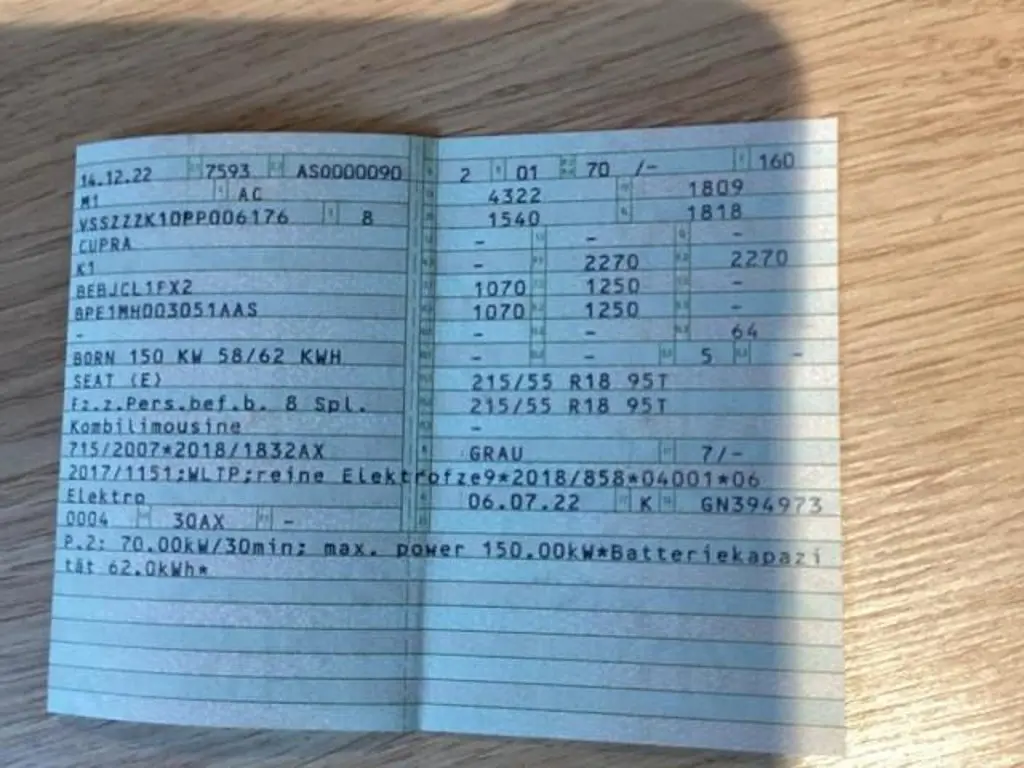 14.12.22 7593 AS0000090
M1 AC
VSSZZZK1DPP006176 8
CUPRA
K1
BEBJCL1FX2
BPE1MH003051AAS
-
BORN 150 KW 58/62 KWH
SEAT (E)
Fz.z.Pers.bef.b. 8 Spl.
Kombilimousine
715/2007*2018/1832AX
2017/1151;WLTP;reine Elektrofze9*2018/858*04001*06
Elektro
0004 30AX -
2 01 70 /- 160
4322 1809
1540 1818
- - -
- 2270 2270
1070 1250 -
1070 1250 -
- 64
- - 5 -
215/55 R18 95T
215/55 R18 95T
-
GRAU 7/-
06.07.22 K GN394973
P.2: 70.00kW/30min; max. power 150.00kW*Batteriekapazi
tät 62.0kWh*